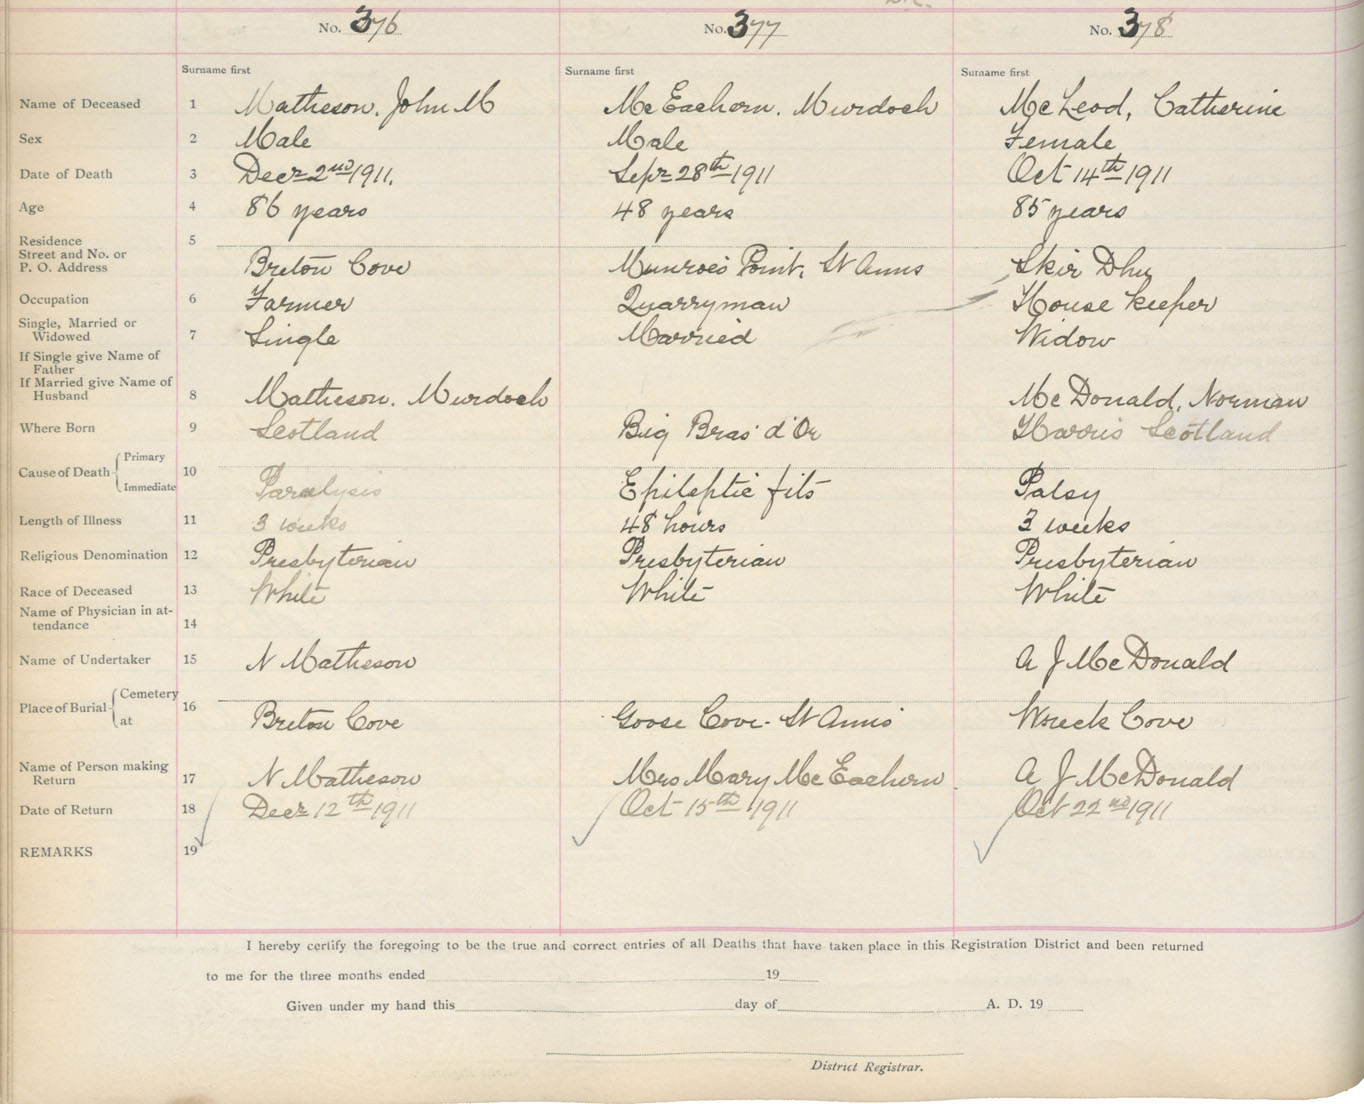 No. 376 No. 377 No. 378
Surname first Surname first Surname first
Name of Deceased 1 Matheson, John M McEachern, Murdoch McLeod, Catherine
Sex 2 Male Male Female
Date of Death 3 Decr 2nd 1911. Sepr 28th 1911 Oct 14th 1911
Age 4 86 years 48 years 85 years
Residence 5
Street and No. or
P. O. Address Breton Cove Munroe's Point, St Anns Skir Dhu
Occupation 6 Farmer Quarryman House keeper
Single, Married or
Widowed 7 Single Married Widow
If Single give Name of
Father
If Married give Name of
Husband 8 Matheson, Murdoch McDonald, Norman
Where Born 9 Scotland Big Bras d'Or Harris Scotland
Cause of Death Primary
Immediate 10 Paralysis Epileptic fits Palsy
Length of Illness 11 3 weeks 48 hours 3 weeks
Religious Denomination 12 Presbyterian Presbyterian Presbyterian
Race of Deceased 13 White White White
Name of Physician in at-
tendance 14
Name of Undertaker 15 N Matheson A J McDonald
Place of Burial Cemetery
at 16 Breton Cove Goose Cove - St Anns Wreck Cove
Name of Person making
Return 17 N Matheson Mrs Mary McEachern A J McDonald
Date of Return 18 Decr 12th 1911 Oct 15th 1911 Oct 22nd 1911
REMARKS 19
I hereby certify the foregoing to be the true and correct entries of all Deaths that have taken place in this Registration District and been returned
to me for the three months ended 19
Given under my hand this day of A. D. 19
District Registrar.